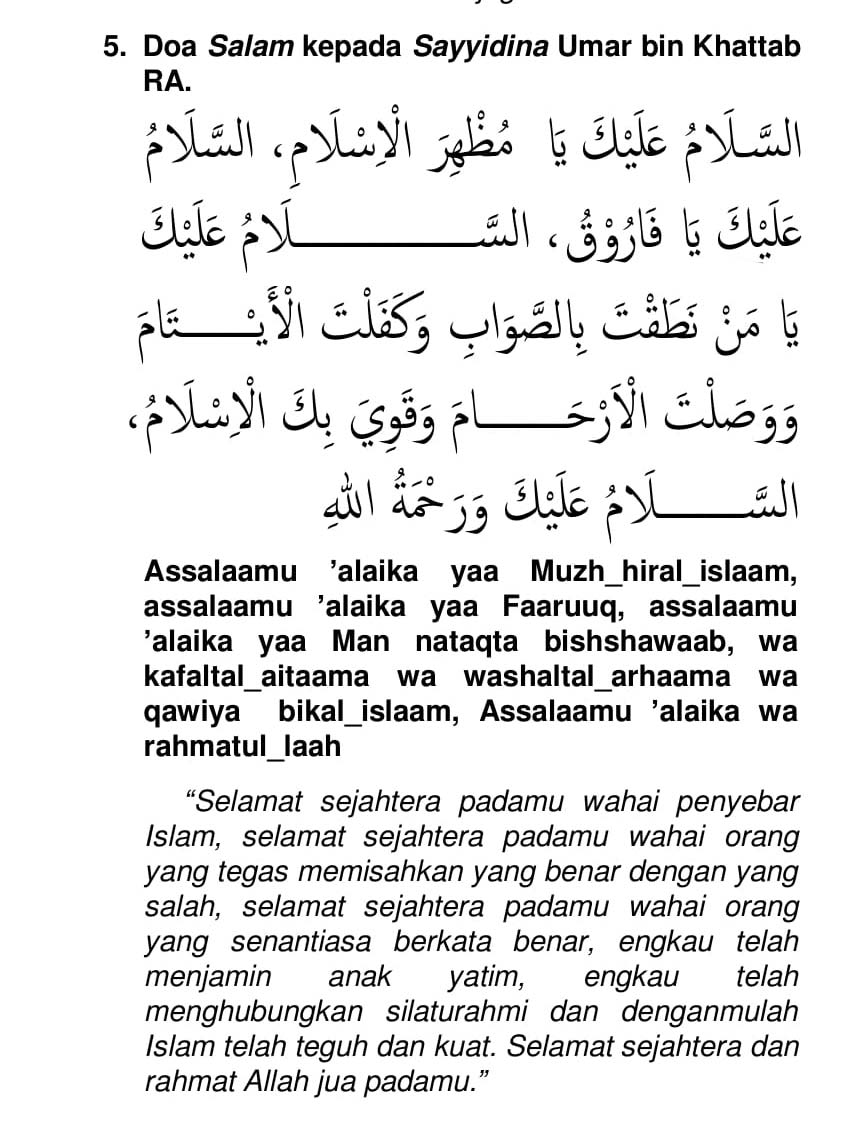 5. Doa Salam kepada Sayyidina Umar bin Khattab
RA.
السَّلَامُ عَلَيْكَ يَا مُظْهِرَ الْإِسْلَامِ، السَّلَامُ
عَلَيْكَ يَا فَارُوْقُ، السَّـــــــــلَامُ عَلَيْكَ
يَا مَنْ نَطَقْتَ بِالصَّوَابِ وَكَفَلْتَ الْأَيْـــتَامَ
وَوَصَلْتَ الْأَرْحَـــــامَ وَقَوِيَ بِكَ الْإِسْلَامُ،
السَّـــــلَامُ عَلَيْكَ وَرَحْمَةُ اللهِ
Assalaamu ’alaika yaa Muzh_hiral_islaam,
assalaamu ’alaika yaa Faaruuq, assalaamu
’alaika yaa Man nataqta bishshawaab, wa
kafaltal_aitaama wa washaltal_arhaama wa
qawiya bikal_islaam, Assalaamu ’alaika wa
rahmatul_laah
“Selamat sejahtera padamu wahai penyebar
Islam, selamat sejahtera padamu wahai orang
yang tegas memisahkan yang benar dengan yang
salah, selamat sejahtera padamu wahai orang
yang senantiasa berkata benar, engkau telah
menjamin anak yatim, engkau telah
menghubungkan silaturahmi dan denganmulah
Islam telah teguh dan kuat. Selamat sejahtera dan
rahmat Allah jua padamu.”